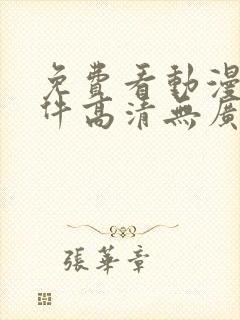 免費看動漫
件高清無廣
張華章